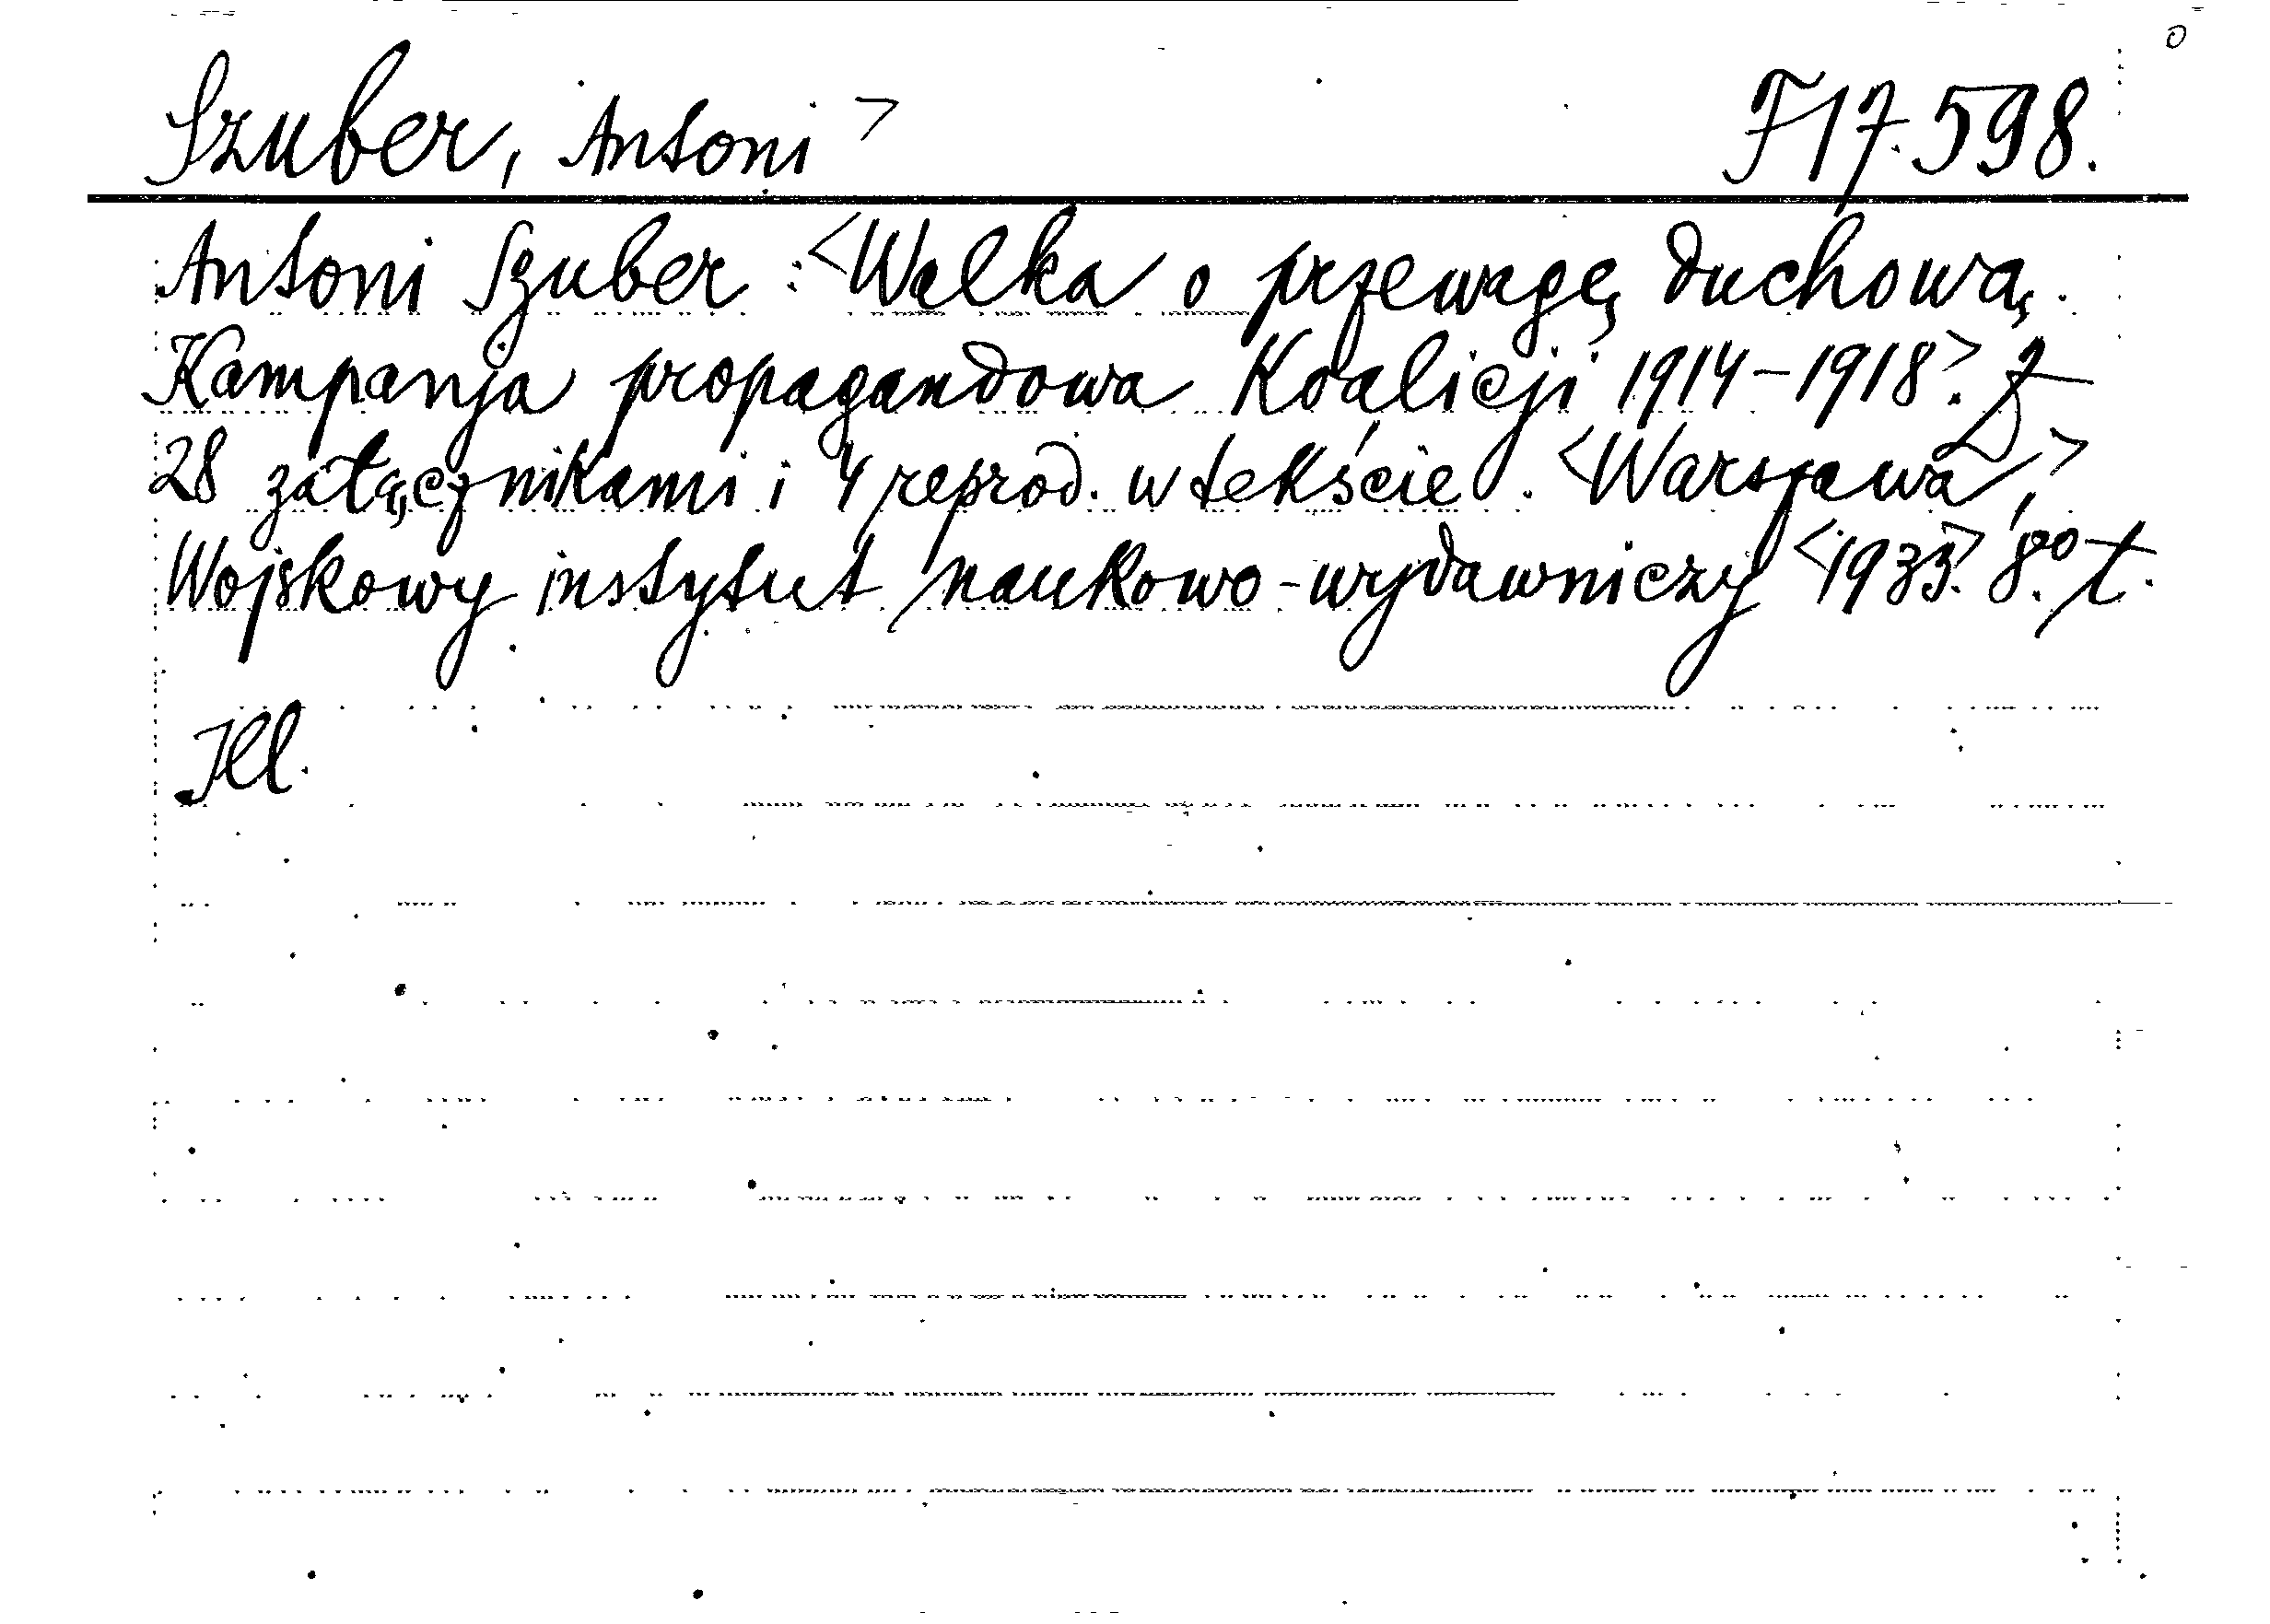 Szuber, Antoni > F 17.598.
Antoni Szuber: <Walka o przewagę duchową.
Kampanja propagandowa Koalicji 1914-1918.> Z
28 załącznikami i 4 reprod. w tekście. <Warszawa,>
Wojskowy instytut naukowo-wydawniczy <1933.> 8.° t.
Ill.